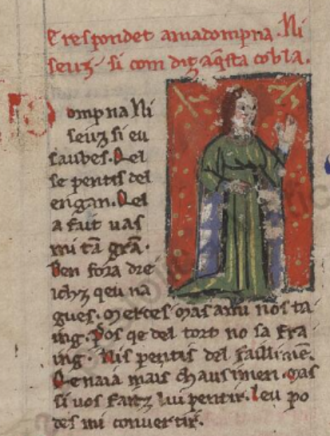 E respondet a madompna. Ni
seuz. si com diz aqsta cobla.
Dompna Ni
seuz si eu
saubes. Qel
se pentis del
engan. Qel
a fait uas
mi tã grã.
Ben fora dre
ichz qeu na
gues. merces mas a mi nos ta
ing. Pos qe del tort no sa fra
ing. Nis pentis del faillimẽ.
Qe naia mais chausimen. mas
si vos faitz lui pentir. leu po
des mi convertir.